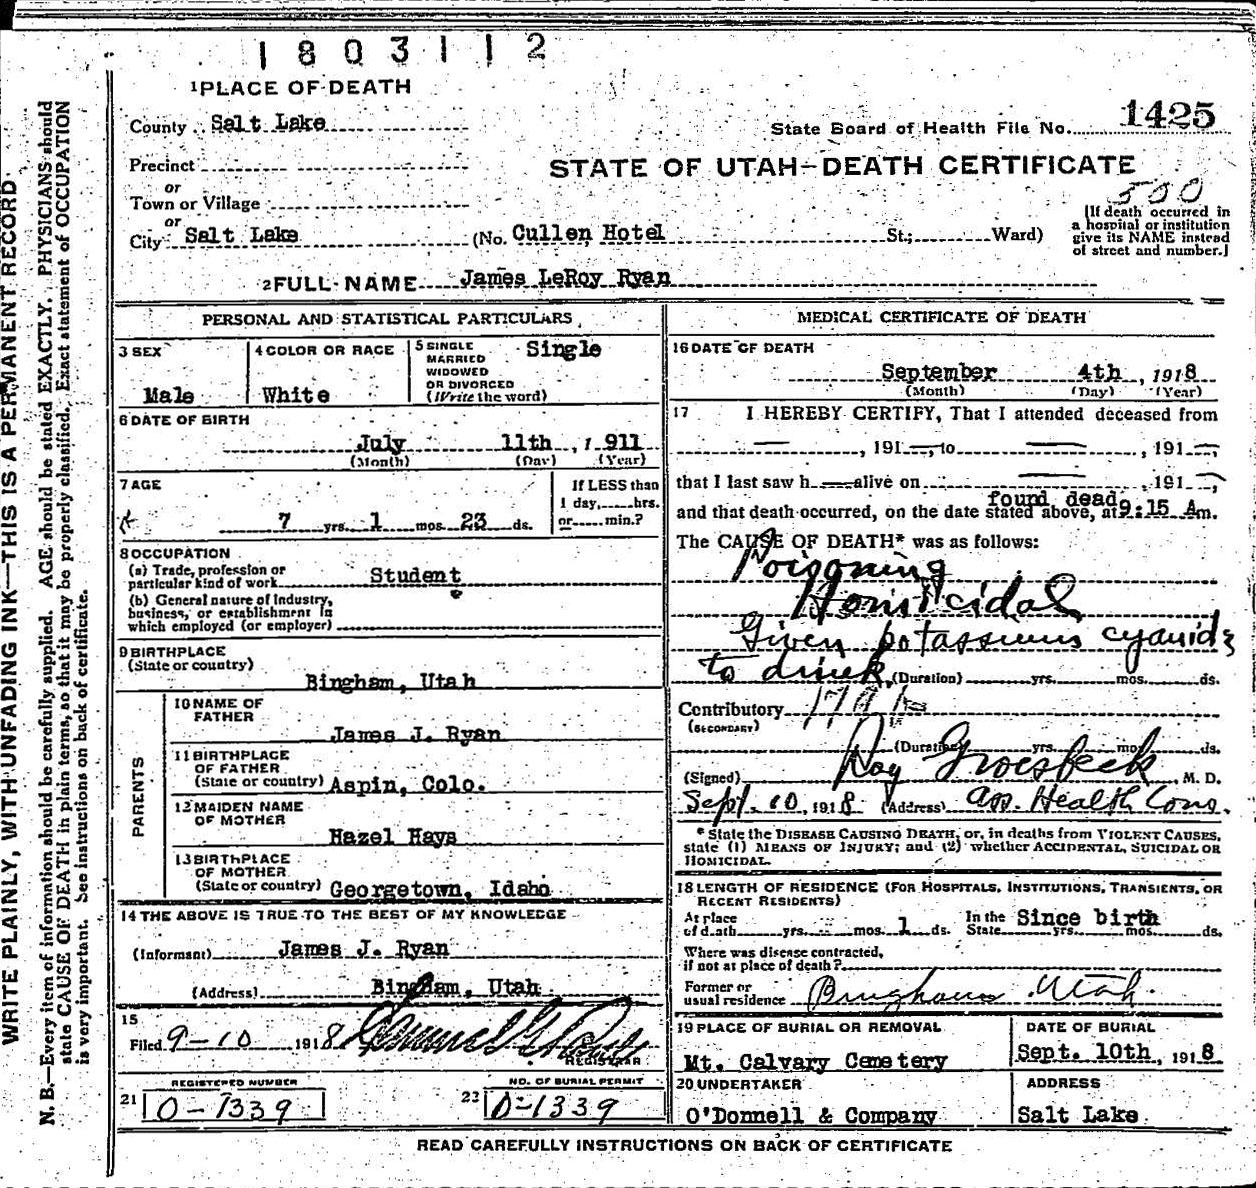 1803112
1 PLACE OF DEATH
County Salt Lake
State Board of Health File No. 1425
Precinct
STATE OF UTAH—DEATH CERTIFICATE
or
Town or Village
500
or
City Salt Lake (No. Cullen Hotel St.; Ward)
[If death occurred in
a hospital or institution
give its NAME instead
of street and number.]
2 FULL NAME James LeRoy Ryan
PERSONAL AND STATISTICAL PARTICULARS
3 SEX
Male
4 COLOR OR RACE
White
5 SINGLE
MARRIED
WIDOWED
OR DIVORCED
(Write the word)
Single
6 DATE OF BIRTH
July 11th, 1911
(Month) (Day) (Year)
7 AGE
7 yrs. 1 mos. 23 ds.
If LESS than
1 day, hrs.
or min.?
8 OCCUPATION
(a) Trade, profession or
particular kind of work Student
(b) General nature of Industry,
business, or establishment in
which employed (or employer)
9 BIRTHPLACE
(State or country)
Bingham, Utah
PARENTS
10 NAME OF
FATHER
James J. Ryan
11 BIRTHPLACE
OF FATHER
(State or country) Aspin, Colo.
12 MAIDEN NAME
OF MOTHER
Hazel Hays
13 BIRTHPLACE
OF MOTHER
(State or country) Georgetown, Idaho
14 THE ABOVE IS TRUE TO THE BEST OF MY KNOWLEDGE
(Informant) James J. Ryan
(Address) Bingham, Utah
15
Filed 9-10 1918
REGISTRAR
REGISTERED NUMBER
21 O-1339
NO. OF BURIAL PERMIT
22 O-1339
MEDICAL CERTIFICATE OF DEATH
16 DATE OF DEATH
September 4th, 1918
(Month) (Day) (Year)
17 I HEREBY CERTIFY, That I attended deceased from
—, 191—, to —, 191—,
that I last saw h— alive on —, 191—,
found dead
and that death occurred, on the date stated above, at 9:15 Am.
The CAUSE OF DEATH* was as follows:
Poisoning
Homicidal
Given potassium cyanide
to drink (Duration) yrs. mos. ds.
Contributory
(SECONDARY)
(Duration) yrs. mos. ds.
(Signed) Roy Groesbeck, M. D.
Sept. 10, 1918 (Address) Ass. Health Coms.
* State the DISEASE CAUSING DEATH, or, in deaths from VIOLENT CAUSES,
state (1) MEANS OF INJURY; and (2) whether ACCIDENTAL, SUICIDAL OR
HOMICIDAL.
18 LENGTH OF RESIDENCE (FOR HOSPITALS, INSTITUTIONS, TRANSIENTS, OR
RECENT RESIDENTS)
At place
of death yrs. mos. 1 ds.
In the
State Since birth yrs. mos. ds.
Where was disease contracted,
if not at place of death?
Former or
usual residence Bingham Utah.
19 PLACE OF BURIAL OR REMOVAL
Mt. Calvary Cemetery
DATE OF BURIAL
Sept. 10th, 1918
20 UNDERTAKER
O'Donnell & Company
ADDRESS
Salt Lake
READ CAREFULLY INSTRUCTIONS ON BACK OF CERTIFICATE
WRITE PLAINLY, WITH UNFADING INK—THIS IS A PERMANENT RECORD
N. B.—Every item of information should be carefully supplied. AGE should be stated EXACTLY. PHYSICIANS should
state CAUSE OF DEATH in plain terms, so that it may be properly classified. Exact statement of OCCUPATION
is very important. See instructions on back of certificate.